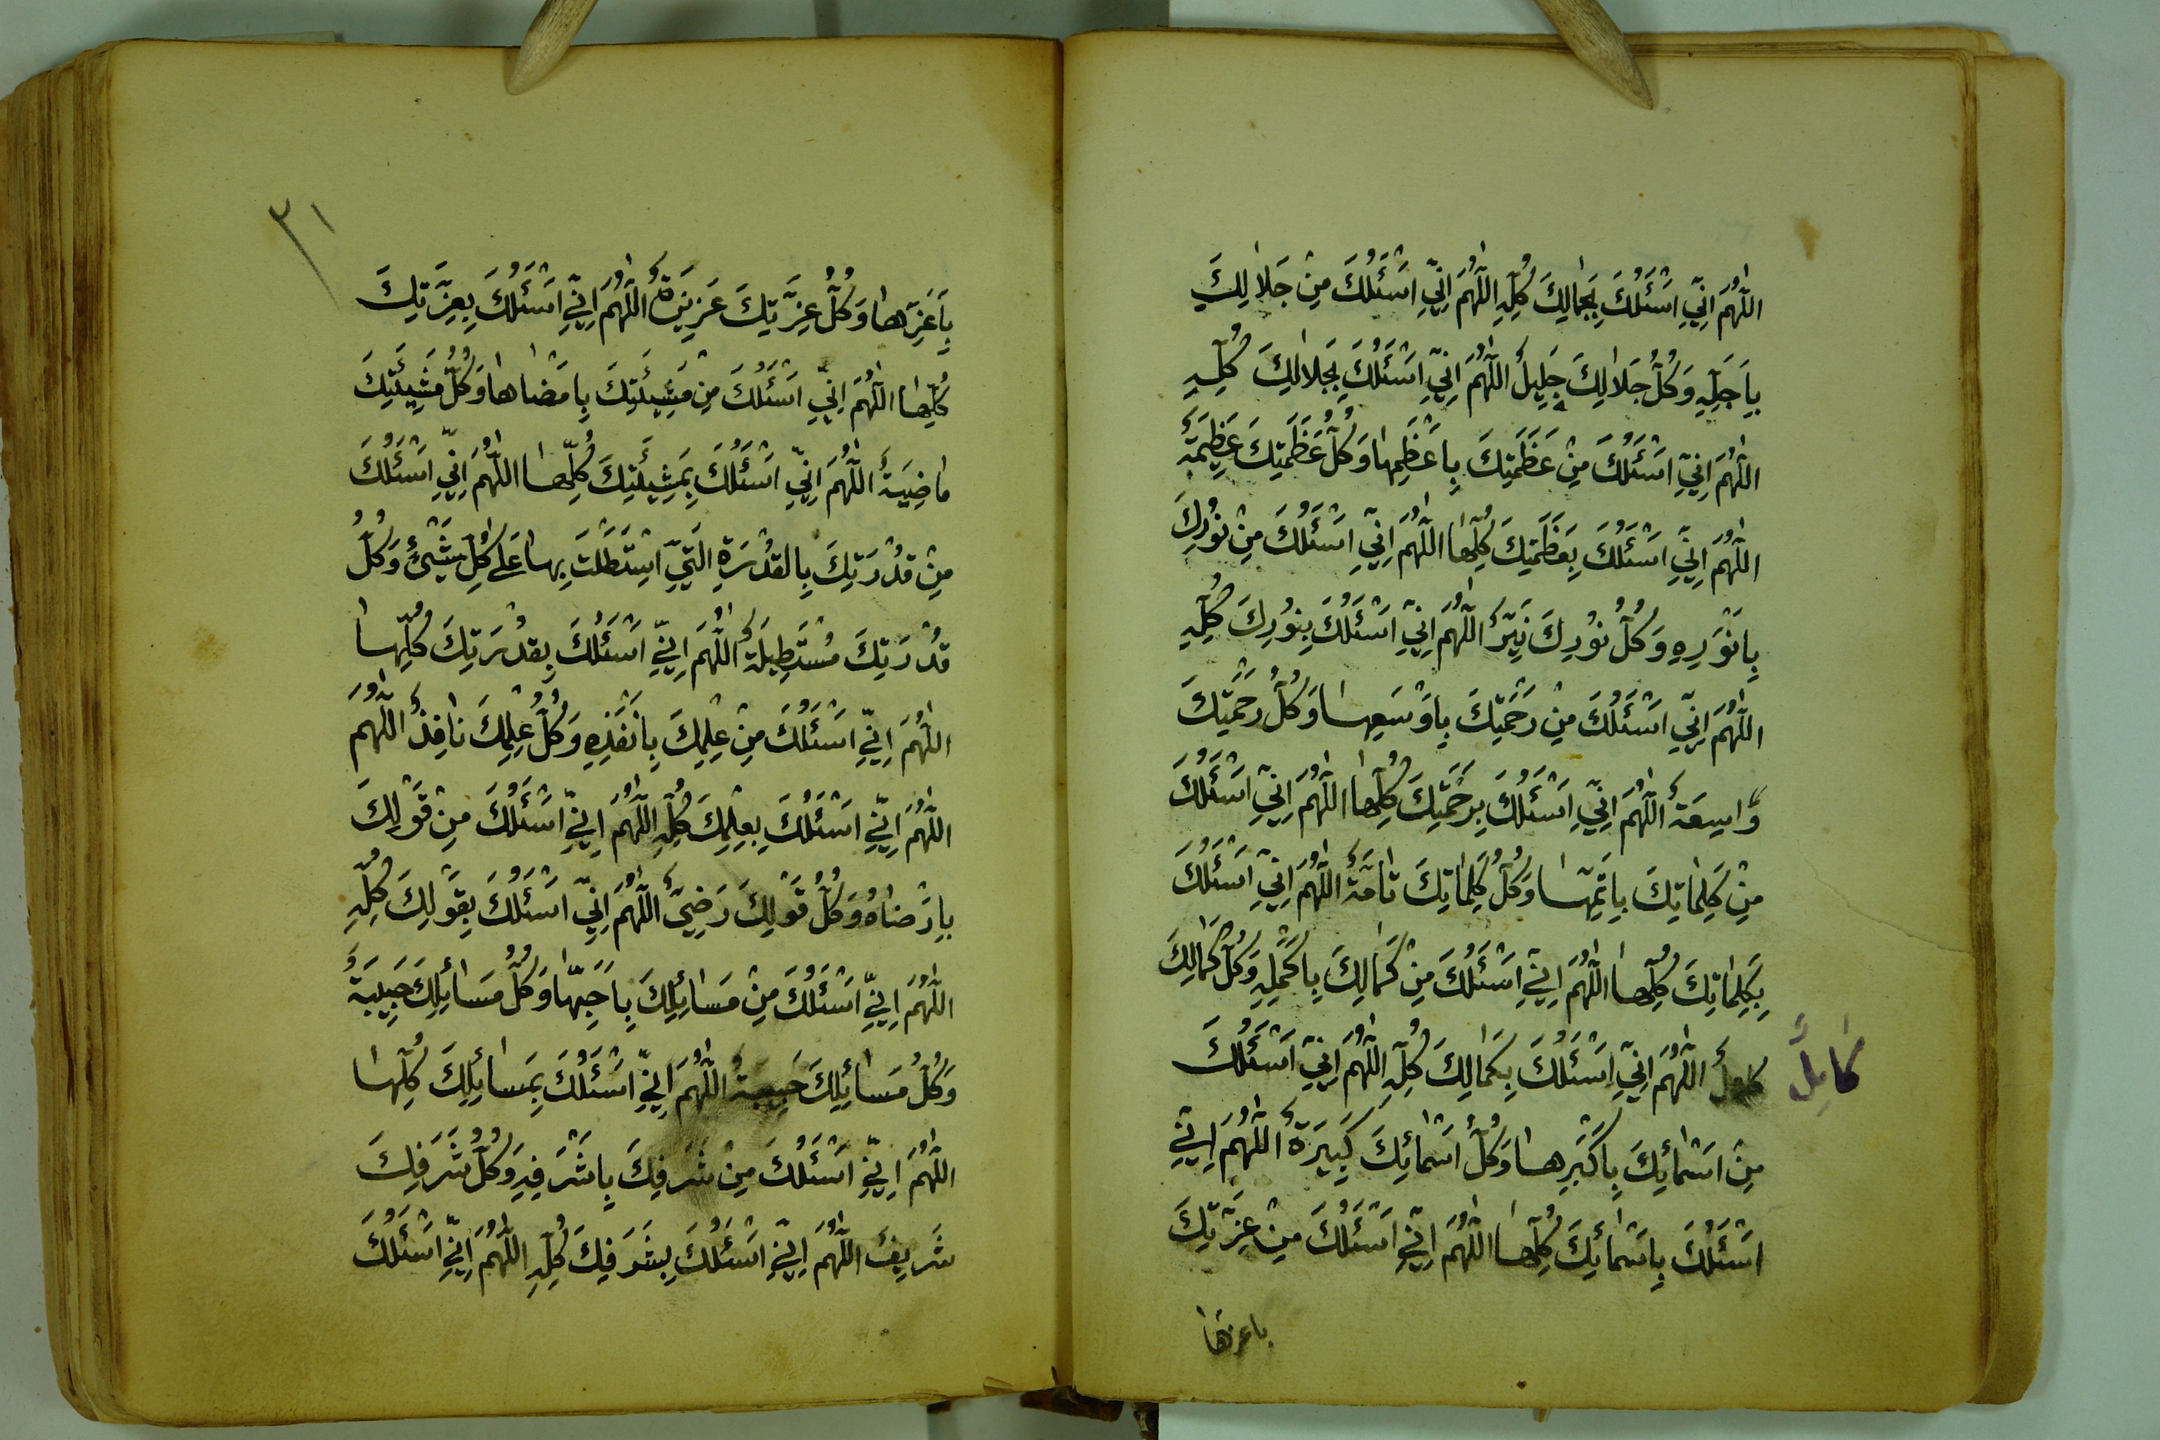 اَللّٰهُمَّ اِنّٖي اَسْئَلُكَ بِجَمٰالِكَ كُلِّهِ اَللّٰهُمَّ اِنّٖي اَسْئَلُكَ مِنْ جَلاٰلِكَ
بِاَجَلِّهِ وَكُلُّ جَلاٰلِكَ جَلِيلٌ اَللّٰهُمَّ اِنّٖي اَسْئَلُكَ بِجَلاٰلِكَ كُلِّهِ
اَللّٰهُمَّ اِنّٖي اَسْئَلُكَ مِنْ عَظَمَتِكَ بِاَعْظَمِهٰا وَكُلُّ عَظَمَتِكَ عَظِيمَةٌ
اَللّٰهُمَّ اِنّٖي اَسْئَلُكَ بِعَظَمَتِكَ كُلِّهٰا اَللّٰهُمَّ اِنّٖي اَسْئَلُكَ مِنْ نُورِكَ
بِاَنْوَرِهِ وَكُلُّ نُورِكَ نَيِّرٌ اَللّٰهُمَّ اِنّٖي اَسْئَلُكَ بِنُورِكَ كُلِّهِ
اَللّٰهُمَّ اِنّٖي اَسْئَلُكَ مِنْ رَحْمَتِكَ بِاَوْسَعِهٰا وَكُلُّ رَحْمَتِكَ
وٰاسِعَةٌ اَللّٰهُمَّ اِنّٖي اَسْئَلُكَ بِرَحْمَتِكَ كُلِّهٰا اَللّٰهُمَّ اِنّٖي اَسْئَلُكَ
مِنْ كَلِمٰاتِكَ بِاَتَمِّهٰا وَكُلُّ كَلِمٰاتِكَ تٰامَّةٌ اَللّٰهُمَّ اِنّٖي اَسْئَلُكَ
بِكَلِمٰاتِكَ كُلِّهٰا اَللّٰهُمَّ اِنّٖي اَسْئَلُكَ مِنْ كَمٰالِكَ بِاَكْمَلِهِ وَكُلُّ كَمٰالِكَ
كٰامِلٌ
كامِلٌ اَللّٰهُمَّ اِنّٖي اَسْئَلُكَ بِكَمٰالِكَ كُلِّهِ اَللّٰهُمَّ اِنّٖي اَسْئَلُكَ
مِنْ اَسْمٰائِكَ بِاَكْبَرِهٰا وَكُلُّ اَسْمٰائِكَ كَبِيرَةٌ اَللّٰهُمَّ اِنّٖي
اَسْئَلُكَ بِاَسْمٰائِكَ كُلِّهٰا اَللّٰهُمَّ اِنّٖي اَسْئَلُكَ مِنْ عِزَّتِكَ
باعزها
٣١
بِاَعَزِّهٰا وَكُلُّ عِزَّتِكَ عَزِيزَةٌ اَللّٰهُمَّ اِنّٖي اَسْئَلُكَ بِعِزَّتِكَ
كُلِّهٰا اَللّٰهُمَّ اِنّٖي اَسْئَلُكَ مِنْ مَشِيئَتِكَ بِاَمْضٰاهٰا وَكُلُّ مَشِيئَتِكَ
مٰاضِيَةٌ اَللّٰهُمَّ اِنّٖي اَسْئَلُكَ بِمَشِيئَتِكَ كُلِّهٰا اَللّٰهُمَّ اِنّٖي اَسْئَلُكَ
مِنْ قُدْرَتِكَ بِالْقُدْرَةِ الَّتِي اسْتَطَلْتَ بِهٰا عَلىٰ كُلِّ شَيْئٍ وَكُلُّ
قُدْرَتِكَ مُسْتَطِيلَةٌ اَللّٰهُمَّ اِنّٖي اَسْئَلُكَ بِقُدْرَتِكَ كُلِّهٰا
اَللّٰهُمَّ اِنّٖي اَسْئَلُكَ مِنْ عِلْمِكَ بِاَنْفَذِهِ وَكُلُّ عِلْمِكَ نٰافِذٌ اَللّٰهُمَّ
اَللّٰهُمَّ اِنّٖي اَسْئَلُكَ بِعِلْمِكَ كُلِّهِ اَللّٰهُمَّ اِنّٖي اَسْئَلُكَ مِنْ قَوْلِكَ
بِاَرْضٰاهُ وَكُلُّ قَوْلِكَ رَضِيٌّ اَللّٰهُمَّ اِنّٖي اَسْئَلُكَ بِقَوْلِكَ كُلِّهِ
اَللّٰهُمَّ اِنّٖي اَسْئَلُكَ مِنْ مَسٰائِلِكَ بِاَحَبِّهٰا وَكُلُّ مَسٰائِلِكَ حَبِيبَةٌ
وَكُلُّ مَسٰائِلِكَ حَبِيبَةٌ اَللّٰهُمَّ اِنّٖي اَسْئَلُكَ بِمَسٰائِلِكَ كُلِّهٰا
اَللّٰهُمَّ اِنّٖي اَسْئَلُكَ مِنْ شَرَفِكَ بِاَشْرَفِهِ وَكُلُّ شَرَفِكَ
شَرِيفٌ اَللّٰهُمَّ اِنّٖي اَسْئَلُكَ بِشَرَفِكَ كُلِّهِ اَللّٰهُمَّ اِنّٖي اَسْئَلُكَ